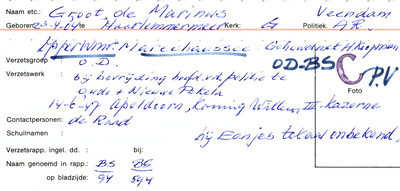 Naam etc.: Groot de Marinus Veendam
Geboren: 23-4-04 te Haarlemmermeer Kerk: G Politiek. A.R.
Opperwmr. Marechaussee Gehuwd met H Koopman
Verzetsgroep O.D. O.D-BS C P.V
Verzetswerk bij bevrijding hoofd politie te
Oude + Nieuwe Pekela Foto
14-6-47 Apeldoorn, Koning Willem III-kazerne
Contactpersonen: de Raad
Schuilnaam: bij Eenjes totaal onbekend.
Verzetsrapp. ingel. dd. : bij:
Naam genoemd in rapp.: BS BC
op bladzijde: 94 594